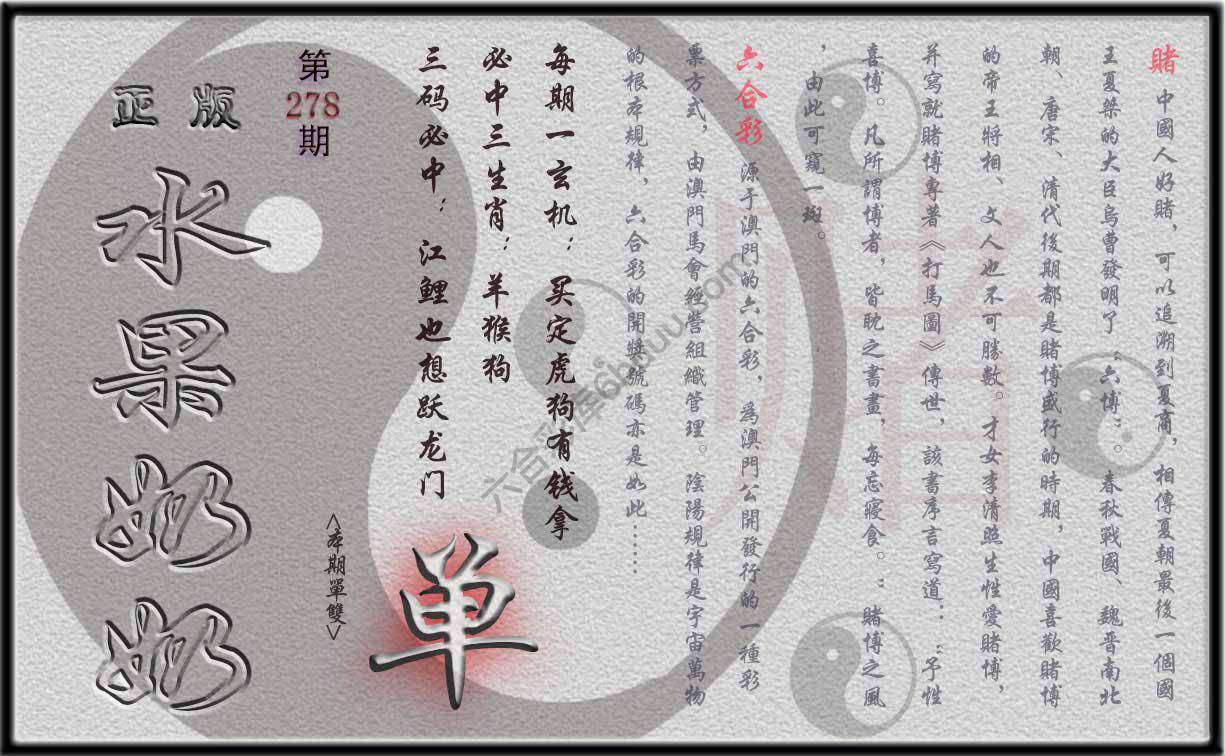 賭 中國人好賭，可以追溯到夏商，相傳夏朝最後一個國
王夏桀的大臣烏曹發明了“六博”。春秋戰國、魏晋南北
朝、唐宋、清代後期都是賭博盛行的時期，中國喜歡賭博
的帝王將相、文人也不可勝數。才女李清照生性愛賭博，
并寫就賭博專著《打馬圖》傳世，該書序言寫道：“予性
喜博。凡所謂博者，皆眈之書畫，每忘寢食。：賭博之風
，由此可窺一斑。
六合彩 源于澳門的六合彩，為澳門公開發行的一種彩
票方式，由澳門馬會經營組織管理。陰陽規律是宇宙萬物
的根本規律，六合彩的開獎號碼亦是如此……
每期一玄机：买定虎狗有钱拿
必中三生肖：羊猴狗
三码必中：江鲤也想跃龙门
单
<本期單雙>
第
278
期
正版
水果奶奶
賭